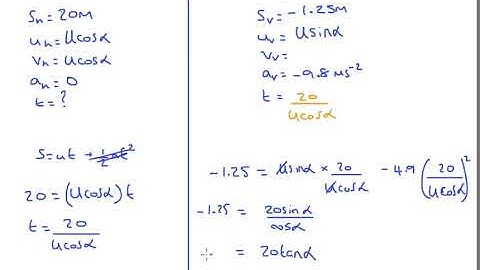 Sₕ = 20m
uₕ = Ucosα
vₕ = Ucosα
aₕ = 0
t = ?
s = ut + ½at²
20 = (Ucosα) t
t = 20/Ucosα
Sᵥ = -1.25m
uᵥ = Usinα
vᵥ =
aᵥ = -9.8 ms⁻²
t = 20/Ucosα
-1.25 = Usinα × 20/Ucosα - 4.9 (20/Ucosα)²
-1.25 = 20sinα/cosα
= 20tanα